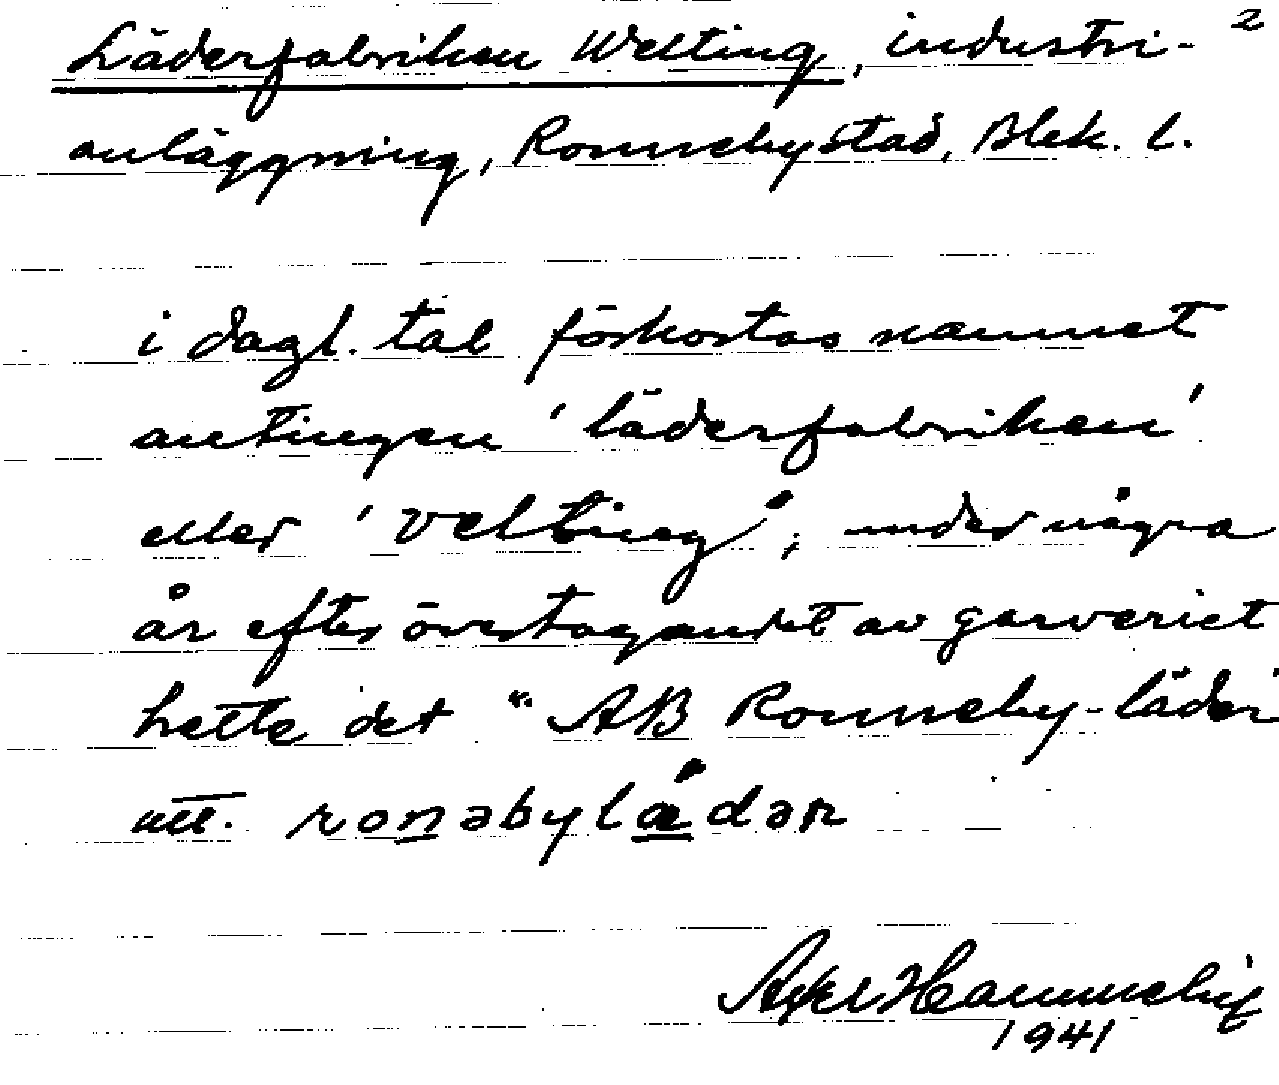 Läderfabriken Welting, industri- 2
anläggning, Ronneby stad, Blek. l.
i dagl. tal förkortas namnet
antingen 'läderfabriken'
eller 'velting'; under några
år efter övertagandet av garveriet
hette det "AB Ronneby-läder
utt. ronəbylädər
Axel
1941